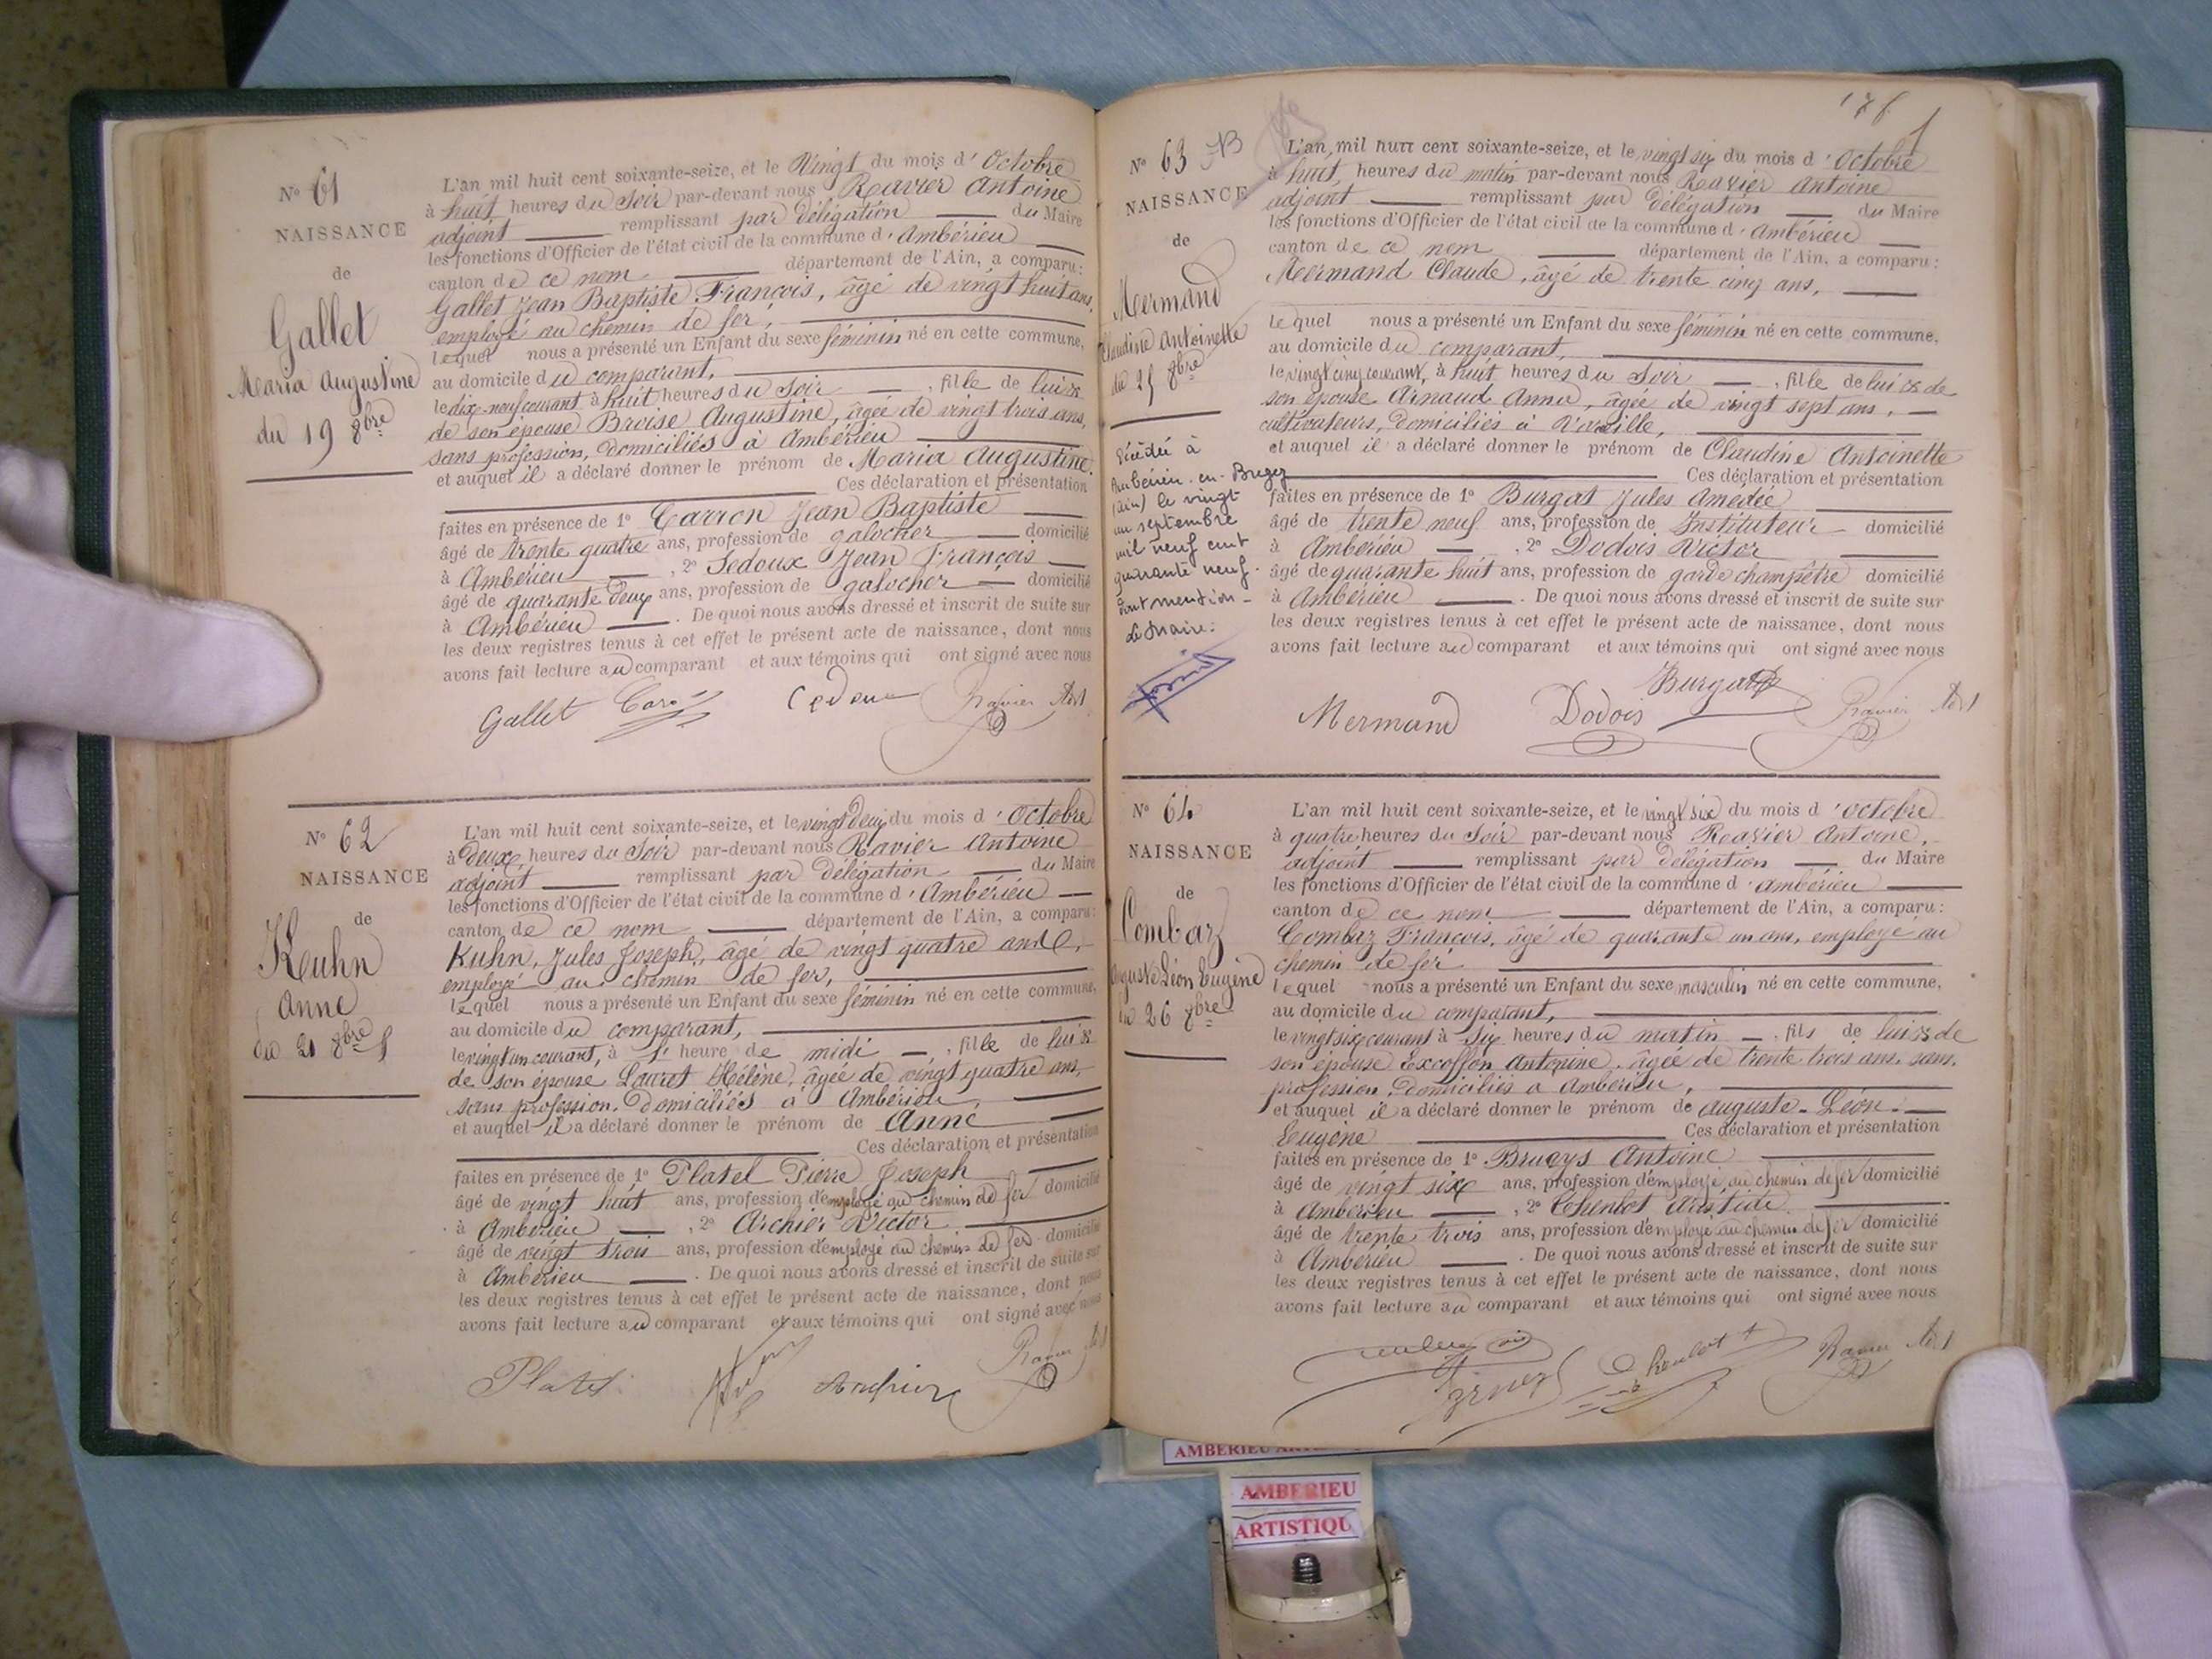 N° 61
NAISSANCE
de
Gallet
Maria Augustine
du 19 8bre
L'an mil huit cent soixante-seize, et le Vingt du mois d'Octobre
à huit heures du Soir par-devant nous Ravier Antoine
adjoint remplissant par délégation du Maire
les fonctions d'Officier de l'état civil de la commune d'Ambérieu
canton de ce nom département de l'Ain, a comparu:
Gallet Jean Baptiste François, âgé de vingt huit ans,
employé au chemin de fer,
lequel nous a présenté un Enfant du sexe féminin né en cette commune,
au domicile du comparant,
le dix-neuf courant à huit heures du Soir, fille de lui &
de son épouse Broise Augustine, âgée de vingt trois ans,
sans profession, domiciliés à Ambérieu
et auquel il a déclaré donner le prénom de Maria Augustine.
Ces déclaration et présentation
faites en présence de 1° Carron Jean Baptiste
âgé de trente quatre ans, profession de galocher domicilié
à Ambérieu, 2° Sedoux Jean François
âgé de quarante deux ans, profession de galocher domicilié
à Ambérieu. De quoi nous avons dressé et inscrit de suite sur
les deux registres tenus à cet effet le présent acte de naissance, dont nous
avons fait lecture au comparant et aux témoins qui ont signé avec nous
Gallet Ravier Adt
N° 62
NAISSANCE
de
Kuhn
Anne
du 21 8bre
L'an mil huit cent soixante-seize, et le vingt deux du mois d'Octobre
à deux heures du Soir par-devant nous Ravier Antoine
adjoint remplissant par délégation du Maire
les fonctions d'Officier de l'état civil de la commune d'Ambérieu
canton de ce nom département de l'Ain, a comparu:
Kuhn, Jules Joseph, âgé de vingt quatre ans,
employé au chemin de fer,
lequel nous a présenté un Enfant du sexe féminin né en cette commune,
au domicile du comparant,
le vingt un courant, à heure de midi, fille de lui &
de son épouse Louret Hélène, âgée de vingt quatre ans,
sans profession, domiciliés à Ambérieu,
et auquel il a déclaré donner le prénom de Anne
Ces déclaration et présentation
faites en présence de 1° Platel Pierre Joseph
âgé de vingt huit ans, profession d'employé au chemin de fer domicilié
à Ambérieu, 2° Archier Victor
âgé de vingt trois ans, profession d'employé au chemin de fer domicilié
à Ambérieu. De quoi nous avons dressé et inscrit de suite sur
les deux registres tenus à cet effet le présent acte de naissance, dont nous
avons fait lecture au comparant et aux témoins qui ont signé avec nous
Platel Ravier Adt
N° 63
NAISSANCE
de
Mermand
Claudine Antoinette
du 25 8bre
Décédée à
Ambérieu-en-Bugey
(Ain) le vingt
un septembre
mil neuf cent
quarante neuf.
Dont mention
Le Maire:
L'an mil huit cent soixante-seize, et le vingt six du mois d'Octobre
à huit heures du matin par-devant nous Ravier Antoine
adjoint remplissant par délégation du Maire
les fonctions d'Officier de l'état civil de la commune d'Ambérieu
canton de ce nom département de l'Ain, a comparu:
Mermand Claude, âgé de trente cinq ans,
lequel nous a présenté un Enfant du sexe féminin né en cette commune,
au domicile du comparant,
le vingt cinq courant, à huit heures du Soir, fille de lui & de
son épouse Arnaud Anna, âgée de vingt sept ans,
cultivateurs, domiciliés à Vareille,
et auquel il a déclaré donner le prénom de Claudine Antoinette
Ces déclaration et présentation
faites en présence de 1° Burgat Jules Amédée
âgé de trente neuf ans, profession de Instituteur domicilié
à Ambérieu, 2° Dodois Victor
âgé de quarante huit ans, profession de garde champêtre domicilié
à Ambérieu. De quoi nous avons dressé et inscrit de suite sur
les deux registres tenus à cet effet le présent acte de naissance, dont nous
avons fait lecture au comparant et aux témoins qui ont signé avec nous
Mermand Dodois Burgat Ravier Adt
N° 64
NAISSANCE
de
Combaz
Auguste Léon Eugène
du 26 8bre
L'an mil huit cent soixante-seize, et le vingt six du mois d'Octobre
à quatre heures du Soir par-devant nous Ravier Antoine,
adjoint remplissant par délégation du Maire
les fonctions d'Officier de l'état civil de la commune d'Ambérieu
canton de ce nom département de l'Ain, a comparu:
Combaz François, âgé de quarante un ans, employé au
chemin de fer
lequel nous a présenté un Enfant du sexe masculin né en cette commune,
au domicile du comparant,
le vingt six courant à Six heures du matin, fils de lui & de
son épouse Excoffon Antonine, âgée de trente trois ans, sans
profession, domiciliés à Ambérieu,
et auquel il a déclaré donner le prénom de Auguste-Léon-
Eugène Ces déclaration et présentation
faites en présence de 1° Brueys Antoine
âgé de vingt six ans, profession d'employé au chemin de fer domicilié
à Ambérieu, 2° Aristide
âgé de trente trois ans, profession d'employé au chemin de fer domicilié
à Ambérieu. De quoi nous avons dressé et inscrit de suite sur
les deux registres tenus à cet effet le présent acte de naissance, dont nous
avons fait lecture au comparant et aux témoins qui ont signé avec nous
Ravier Adt
AMBERIEU
AMBERIEU
ARTISTIQU